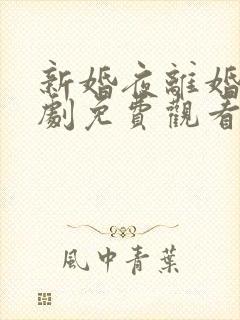 新婚夜離婚
劇免費觀看
風中青葉